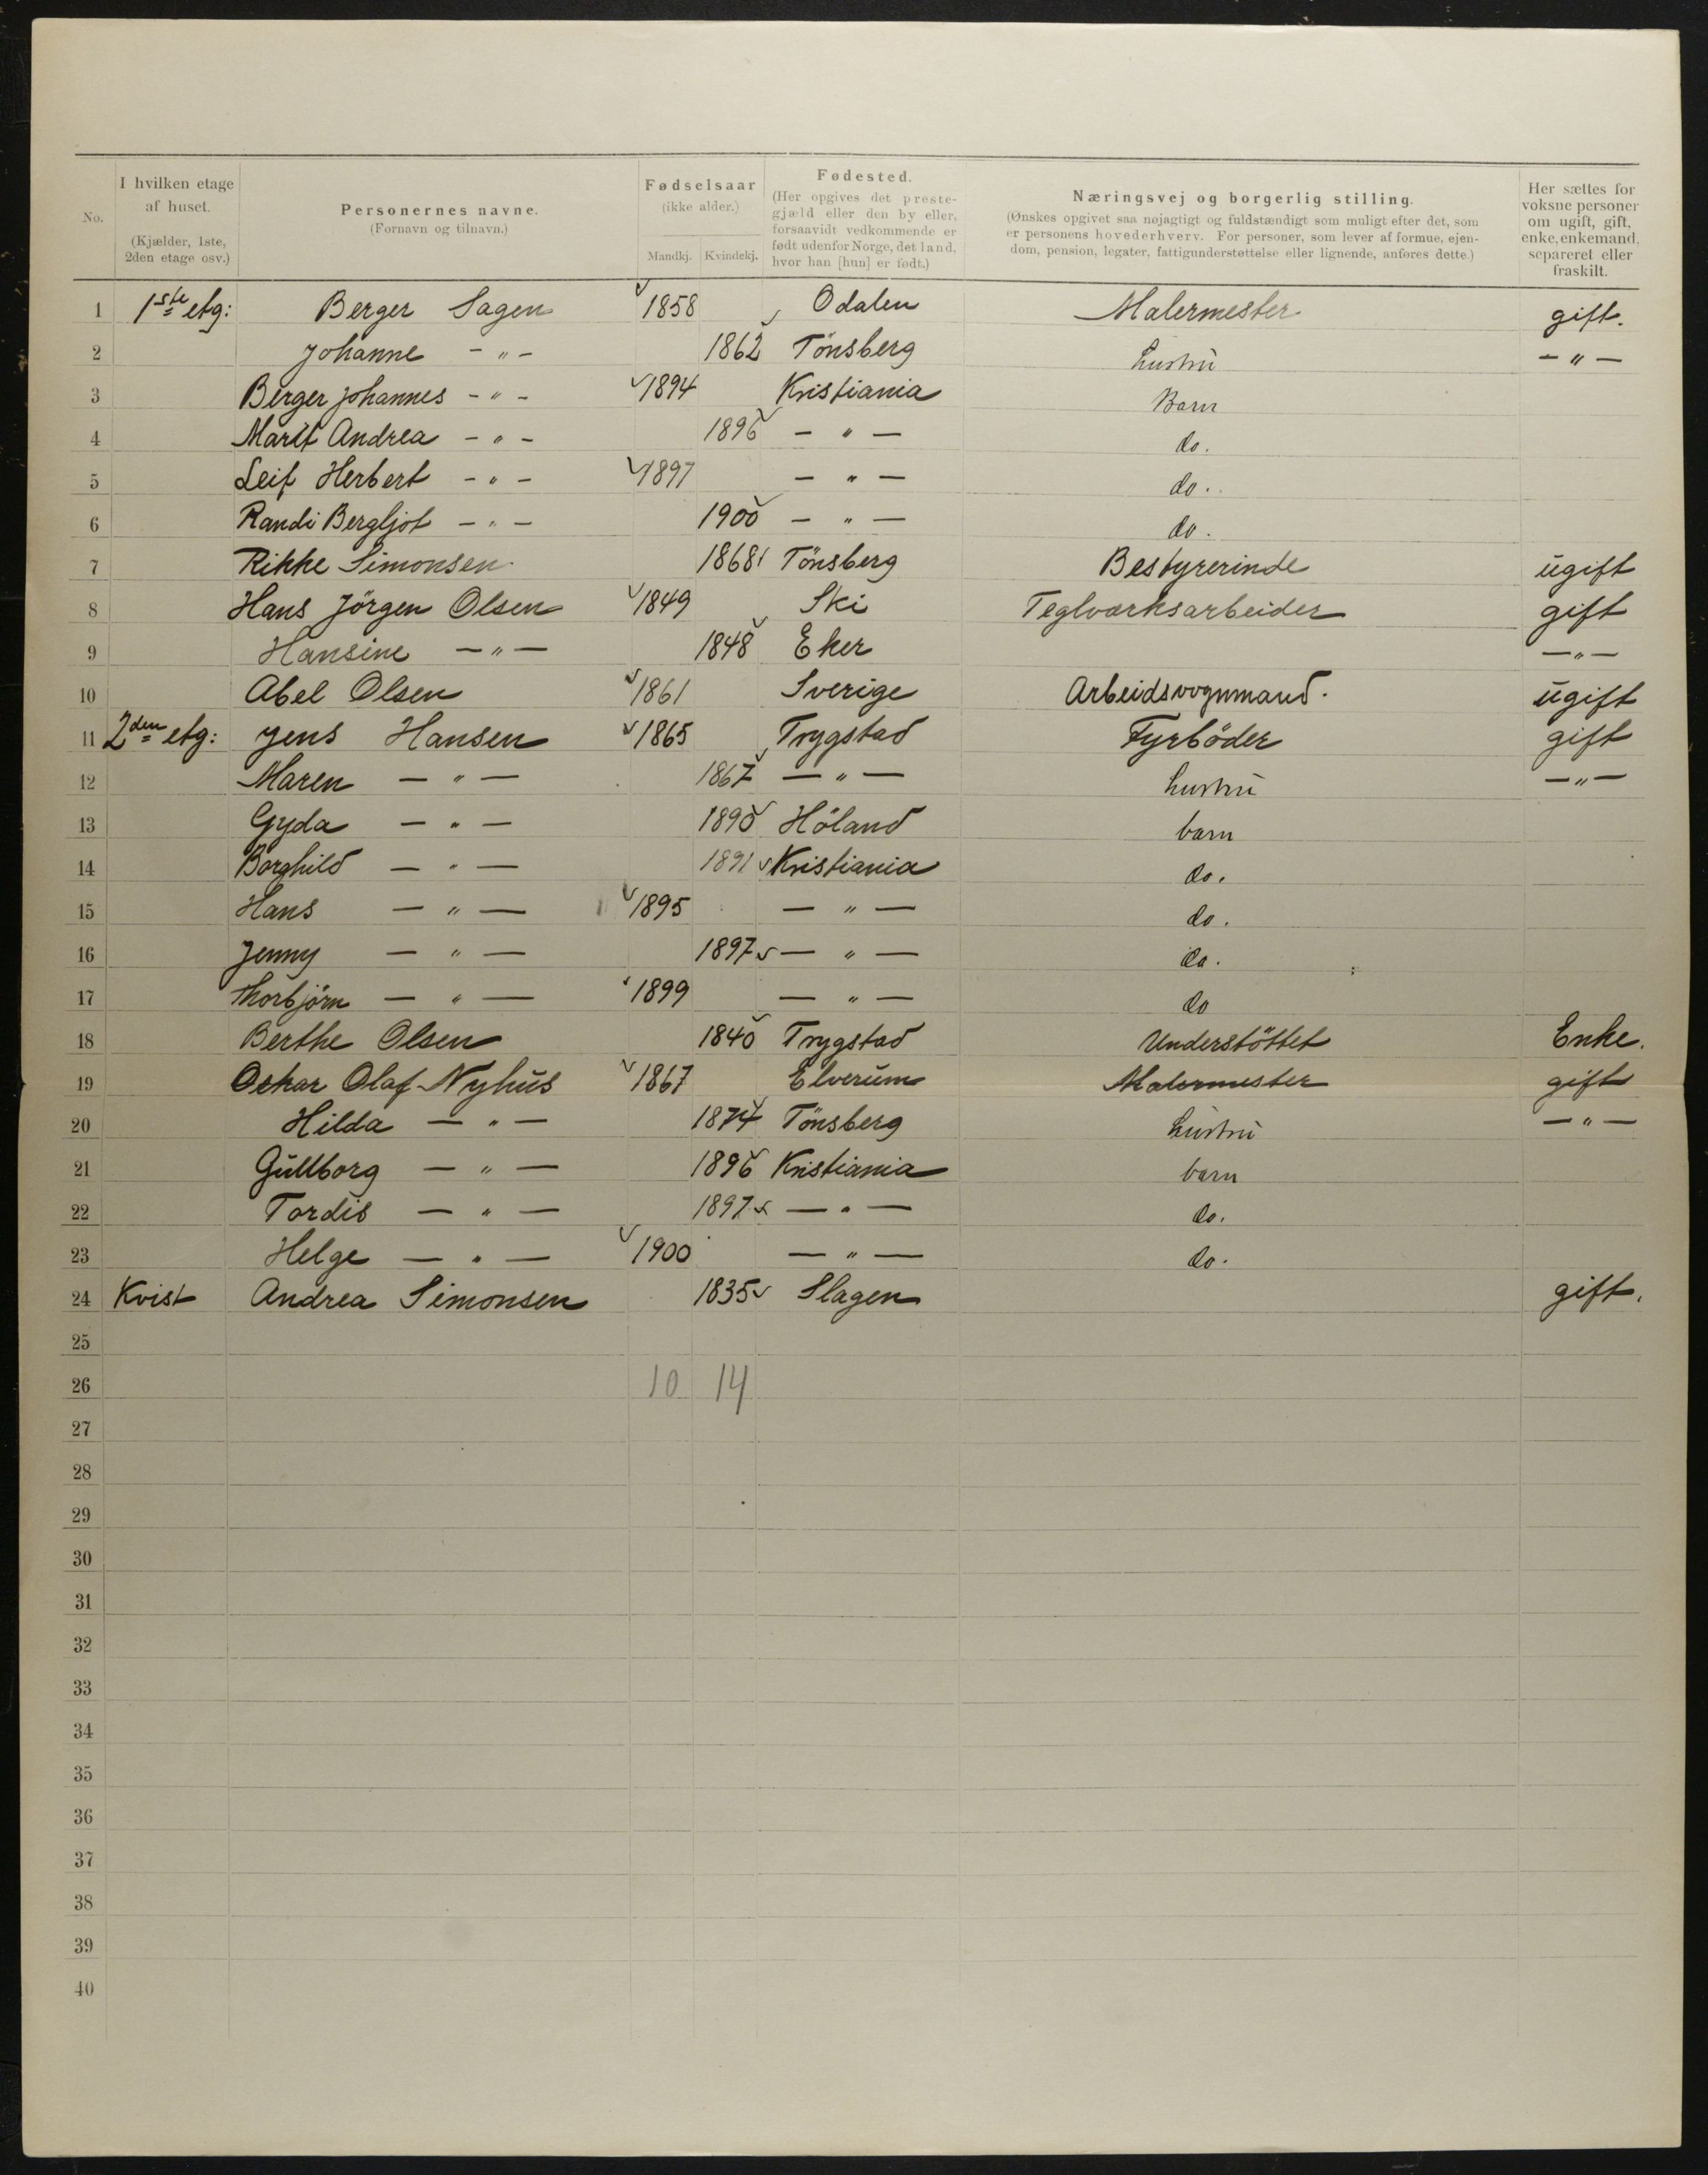 No.
I hvilken etage af huset. (Kjælder, 1ste, 2den etage osv.)
Personernes navne. (Fornavn og tilnavn.)
Fødselsaar (ikke alder.) Mandkj. Kvindekj.
Fødested. (Her opgives det prestegjæld eller den by eller, forsaavidt vedkommende er født udenfor Norge, det land, hvor han [hun] er født.)
Næringsvej og borgerlig stilling. (Ønskes opgivet saa nøjagtigt og fuldstændigt som muligt efter det, som er personens hovederhverv. For personer, som lever af formue, ejendom, pension, legater, fattigunderstøttelse eller lignende, anføres dette.)
Her sættes for voksne personer om ugift, gift, enke, enkemand, separeret eller fraskilt.
1 1ste etg: Berger Sagen 1858 Odalen Malermester gift.
2 Johanne – " – 1862 Tönsberg hustru – " –
3 Berger Johannes – " – 1894 Kristiania Barn
4 Marit Andrea – " – 1896 – " – do.
5 Leif Herbert – " – 1897 – " – do.
6 Randi Bergljot – " – 1900 – " – do.
7 Rikke Simonsen 1868 Tönsberg Bestyrerinde ugift
8 Hans Jörgen Olsen 1849 Ski Teglværksarbeider gift
9 Hansine – " – 1848 Eker – " –
10 Abel Olsen 1861 Sverige Arbeidsvognmand. ugift
11 2den etg: Jens Hansen 1865 Trygstad Fyrböder gift
12 Maren – " – 1867 – " – hustru – " –
13 Gyda – " – 1890 Höland barn
14 Borghild – " – 1891 Kristiania do.
15 Hans – " – 1895 – " – do.
16 Jenny – " – 1897 – " – do.
17 Thorbjörn – " – 1899 – " – do
18 Berthe Olsen 1840 Trygstad Understöttet Enke.
19 Oskar Olaf Nyhus 1867 Elverum Malermester gift
20 Hilda – " – 1874 Tönsberg hustru – " –
21 Gullborg – " – 1896 Kristiania barn
22 Tordis – " – 1897 – " – do.
23 Helge – " – 1900 – " – do.
24 Kvist Andrea Simonsen 1835 Slagen gift.
25
26 10 14
27
28
29
30
31
32
33
34
35
36
37
38
39
40